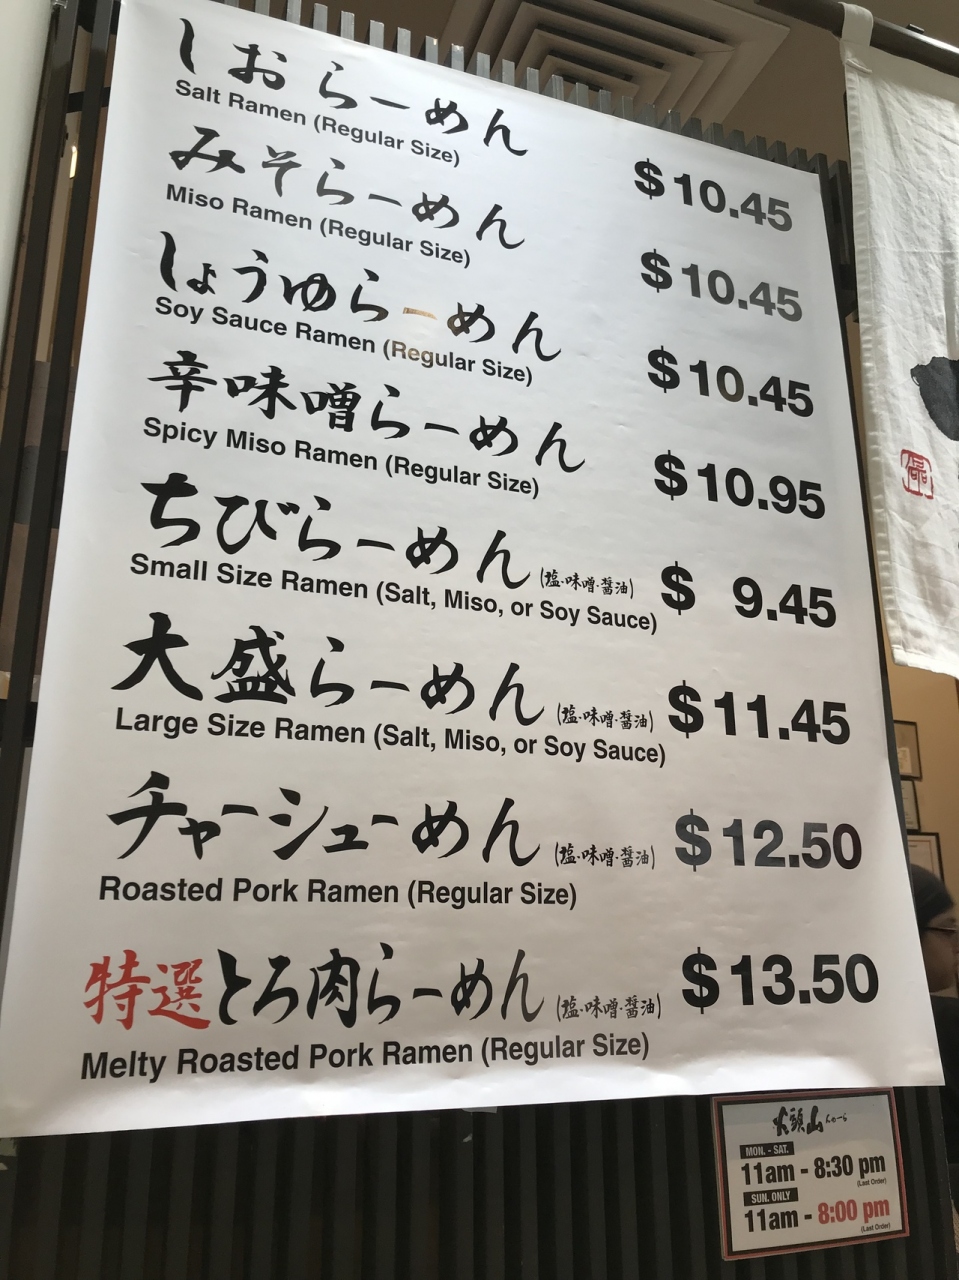 しおらーめん
Salt Ramen (Regular Size)
$10.45
みそらーめん
Miso Ramen (Regular Size)
$10.45
しょうゆらーめん
Soy Sauce Ramen (Regular Size)
$10.45
辛味噌らーめん
Spicy Miso Ramen (Regular Size)
$10.95
ちびらーめん (塩·味噌·醤油)
Small Size Ramen (Salt, Miso, or Soy Sauce)
$ 9.45
大盛らーめん (塩·味噌·醤油)
Large Size Ramen (Salt, Miso, or Soy Sauce)
$11.45
チャーシューめん (塩·味噌·醤油)
Roasted Pork Ramen (Regular Size)
$12.50
特選とろ肉らーめん (塩·味噌·醤油)
Melty Roasted Pork Ramen (Regular Size)
$13.50
MON. - SAT.
11am - 8:30 pm
(Last Order)
SUN. ONLY
11am - 8:00 pm
(Last Order)